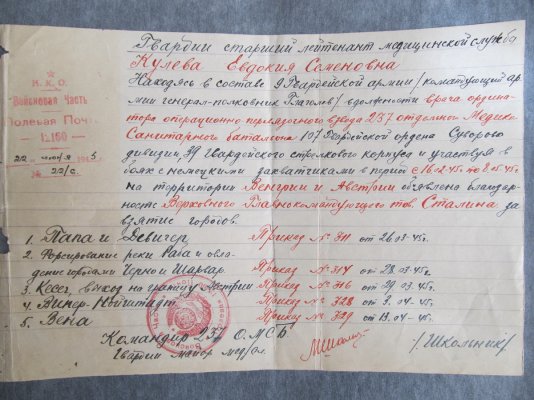 Гвардии старший лейтенант медицинской службы
Кулева Евдокия Семеновна
Н.К.О.
Войсковая Часть
Полевая Почта
22 июня 1945
№ 22/с.
Находясь в составе 9 Гвардейской армии /командующий ар
мии генерал-полковник Глаголев/ в должности врача ордина
тора операционно перевязочного взвода 237 отдельного Медико
Санитарного батальона 107 Гвардейской ордена Суворова
дивизии, 39 Гвардейского стрелкового корпуса и участвуя в
боях с немецкими захватчиками в период с 16-12-45г по 8.05.45г.
на территории Венгрии и Австрии объявлена благодар
ность Верховного Главнокомандующего тов. Сталина за
взятие городов.
1. Папа и Девичер Приказ № 311 от 26.03-45г.
2. Форсирование реки Раба и овла
дение городами Черной Шарвар. Приказ № 314 от 28.03-45г.
3. Кесег, выход на границу Австрии Приказ № 316 от 29.03-45г.
4. Винер-Нойштадт Приказ № 328 от 2.04-45г.
5. Вена Приказ № 329 от 13.04-45г.
Командир 237 О.М.С.Б.
Гвардии майор мед/сл. /Школьник/